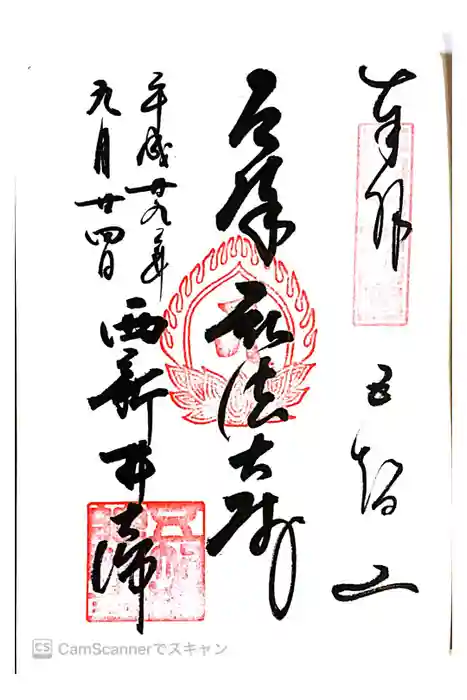 奉拝 五智山
厄除 弘法大師
平成廿九年
九月廿四日
西新井大師
CS CamScannerでスキャン